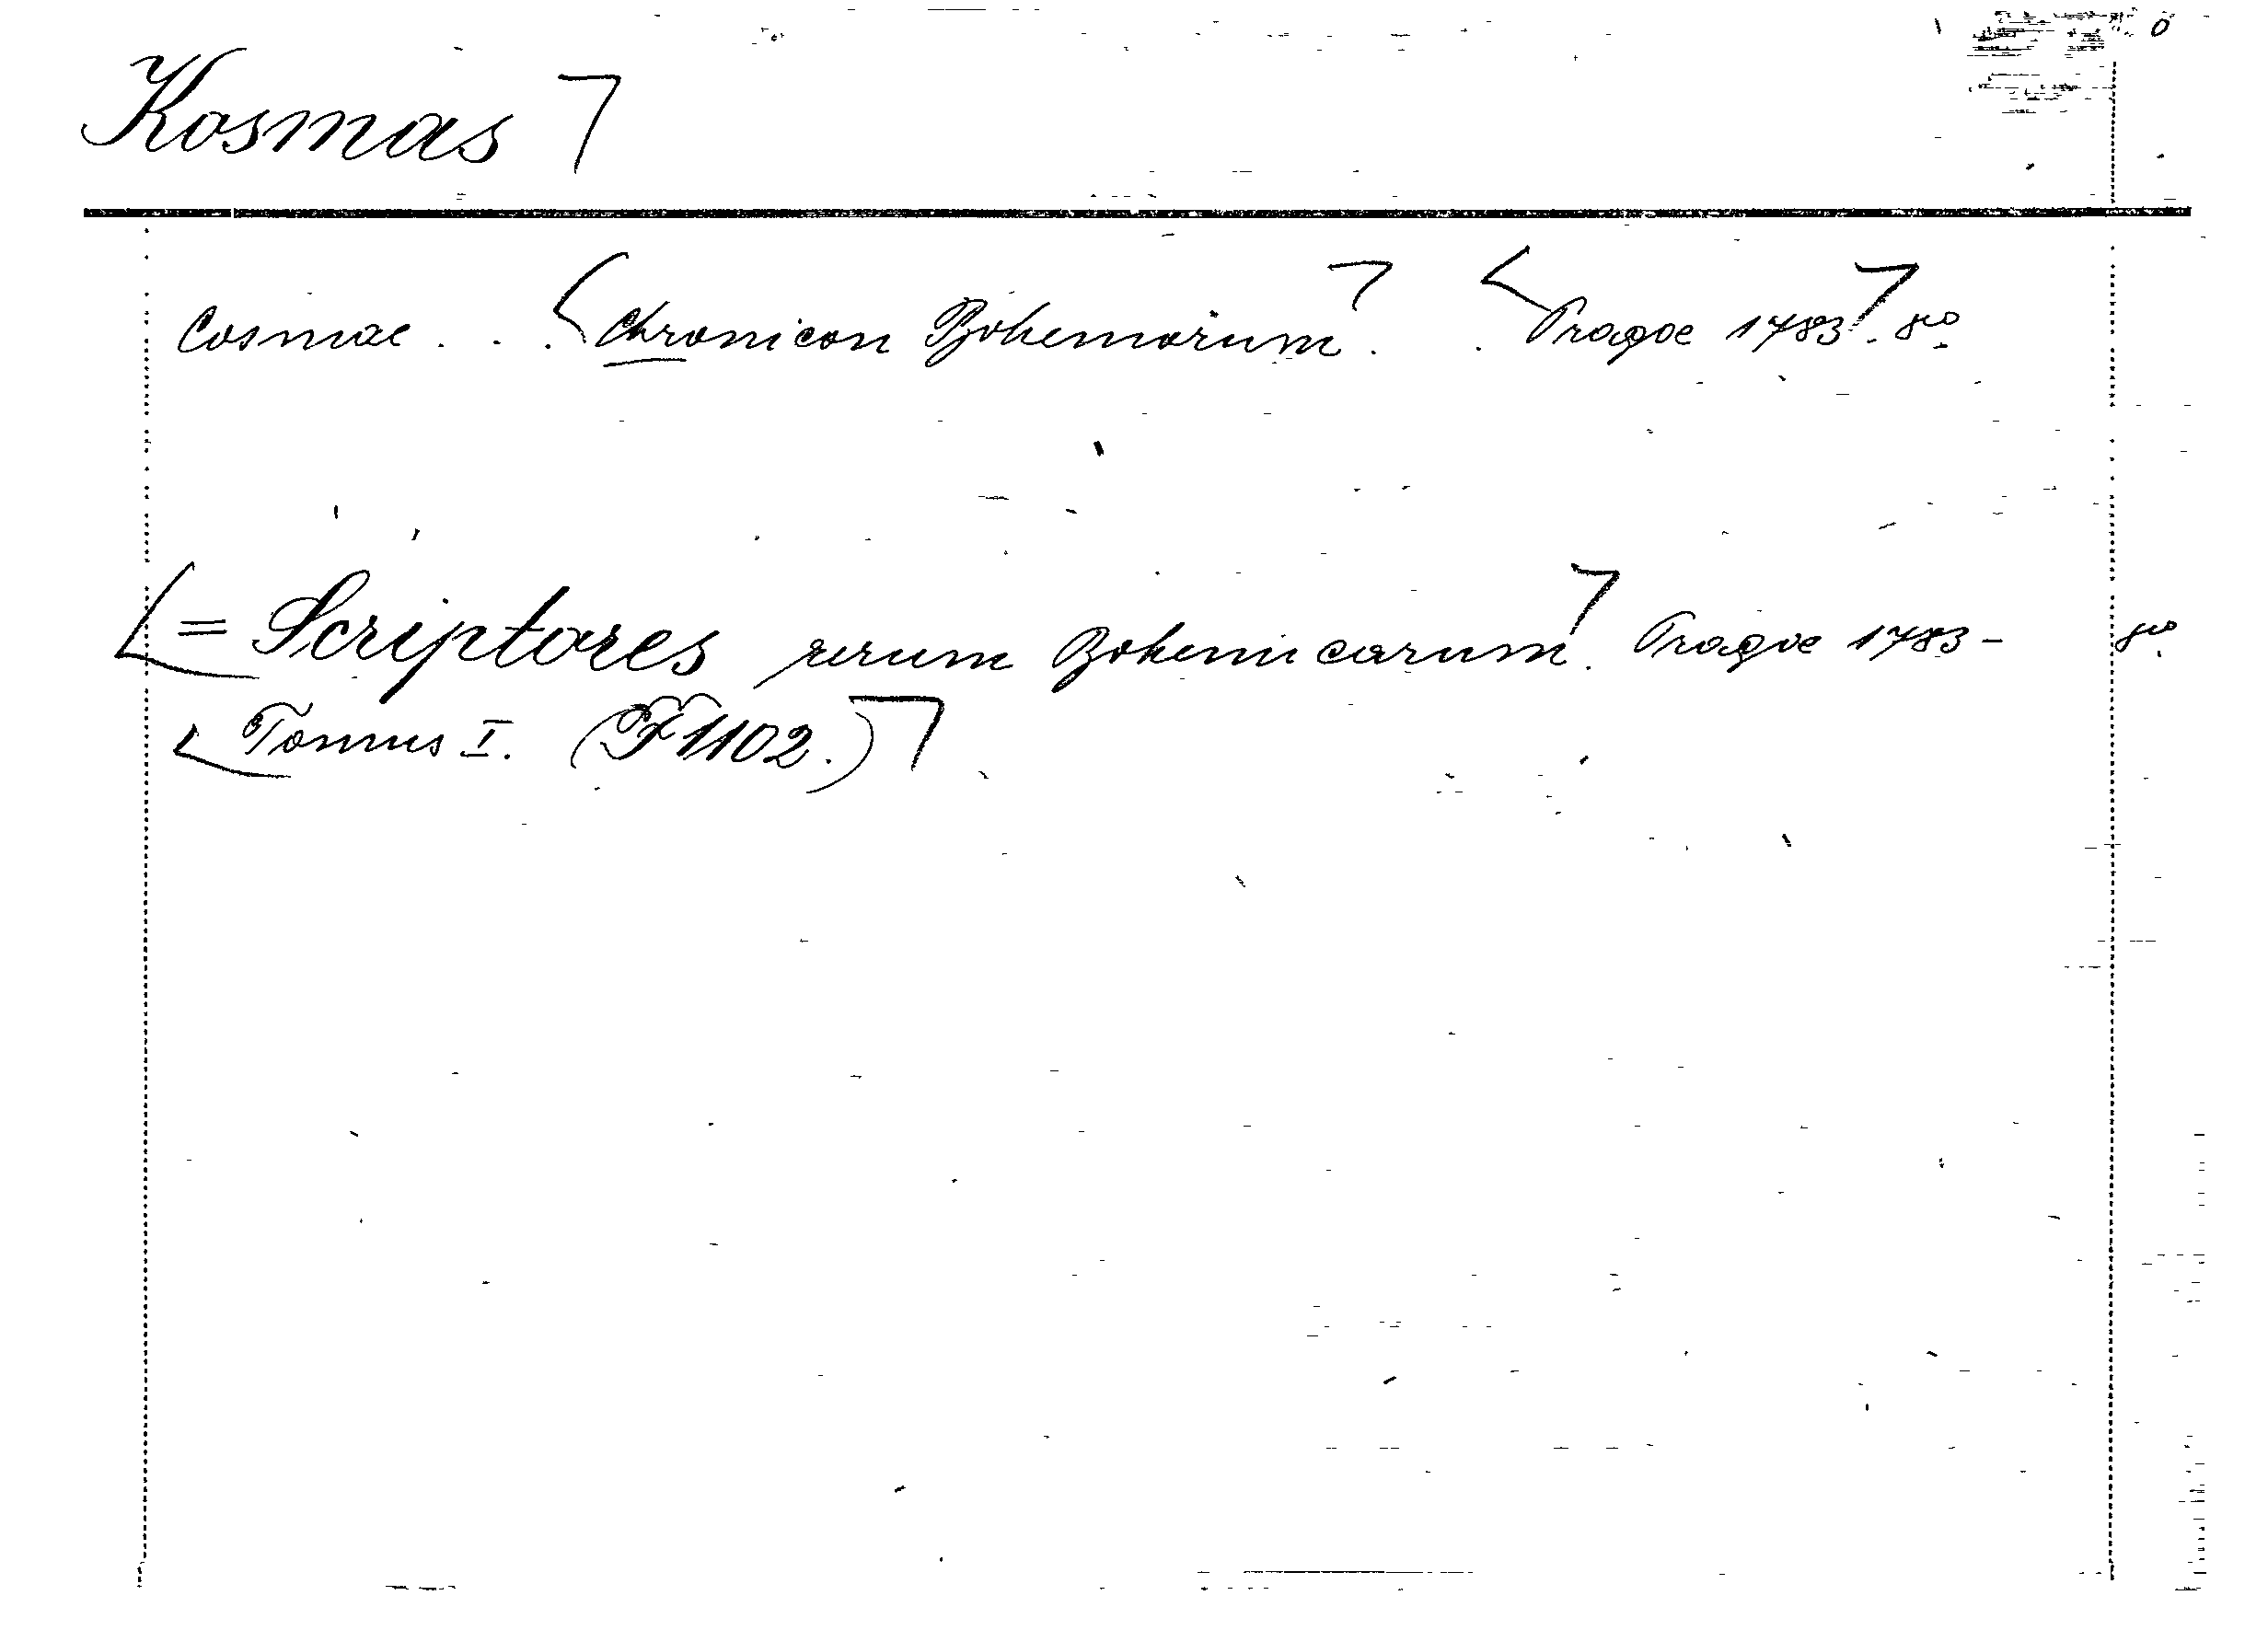 Kosmas
Cosmae . . . Chronicon Bohemorum. . Pragae 1783. 8º.
= Scriptores rerum Bohemicarum. Pragae 1783- 8º.
Tomus I. (F 1102.)